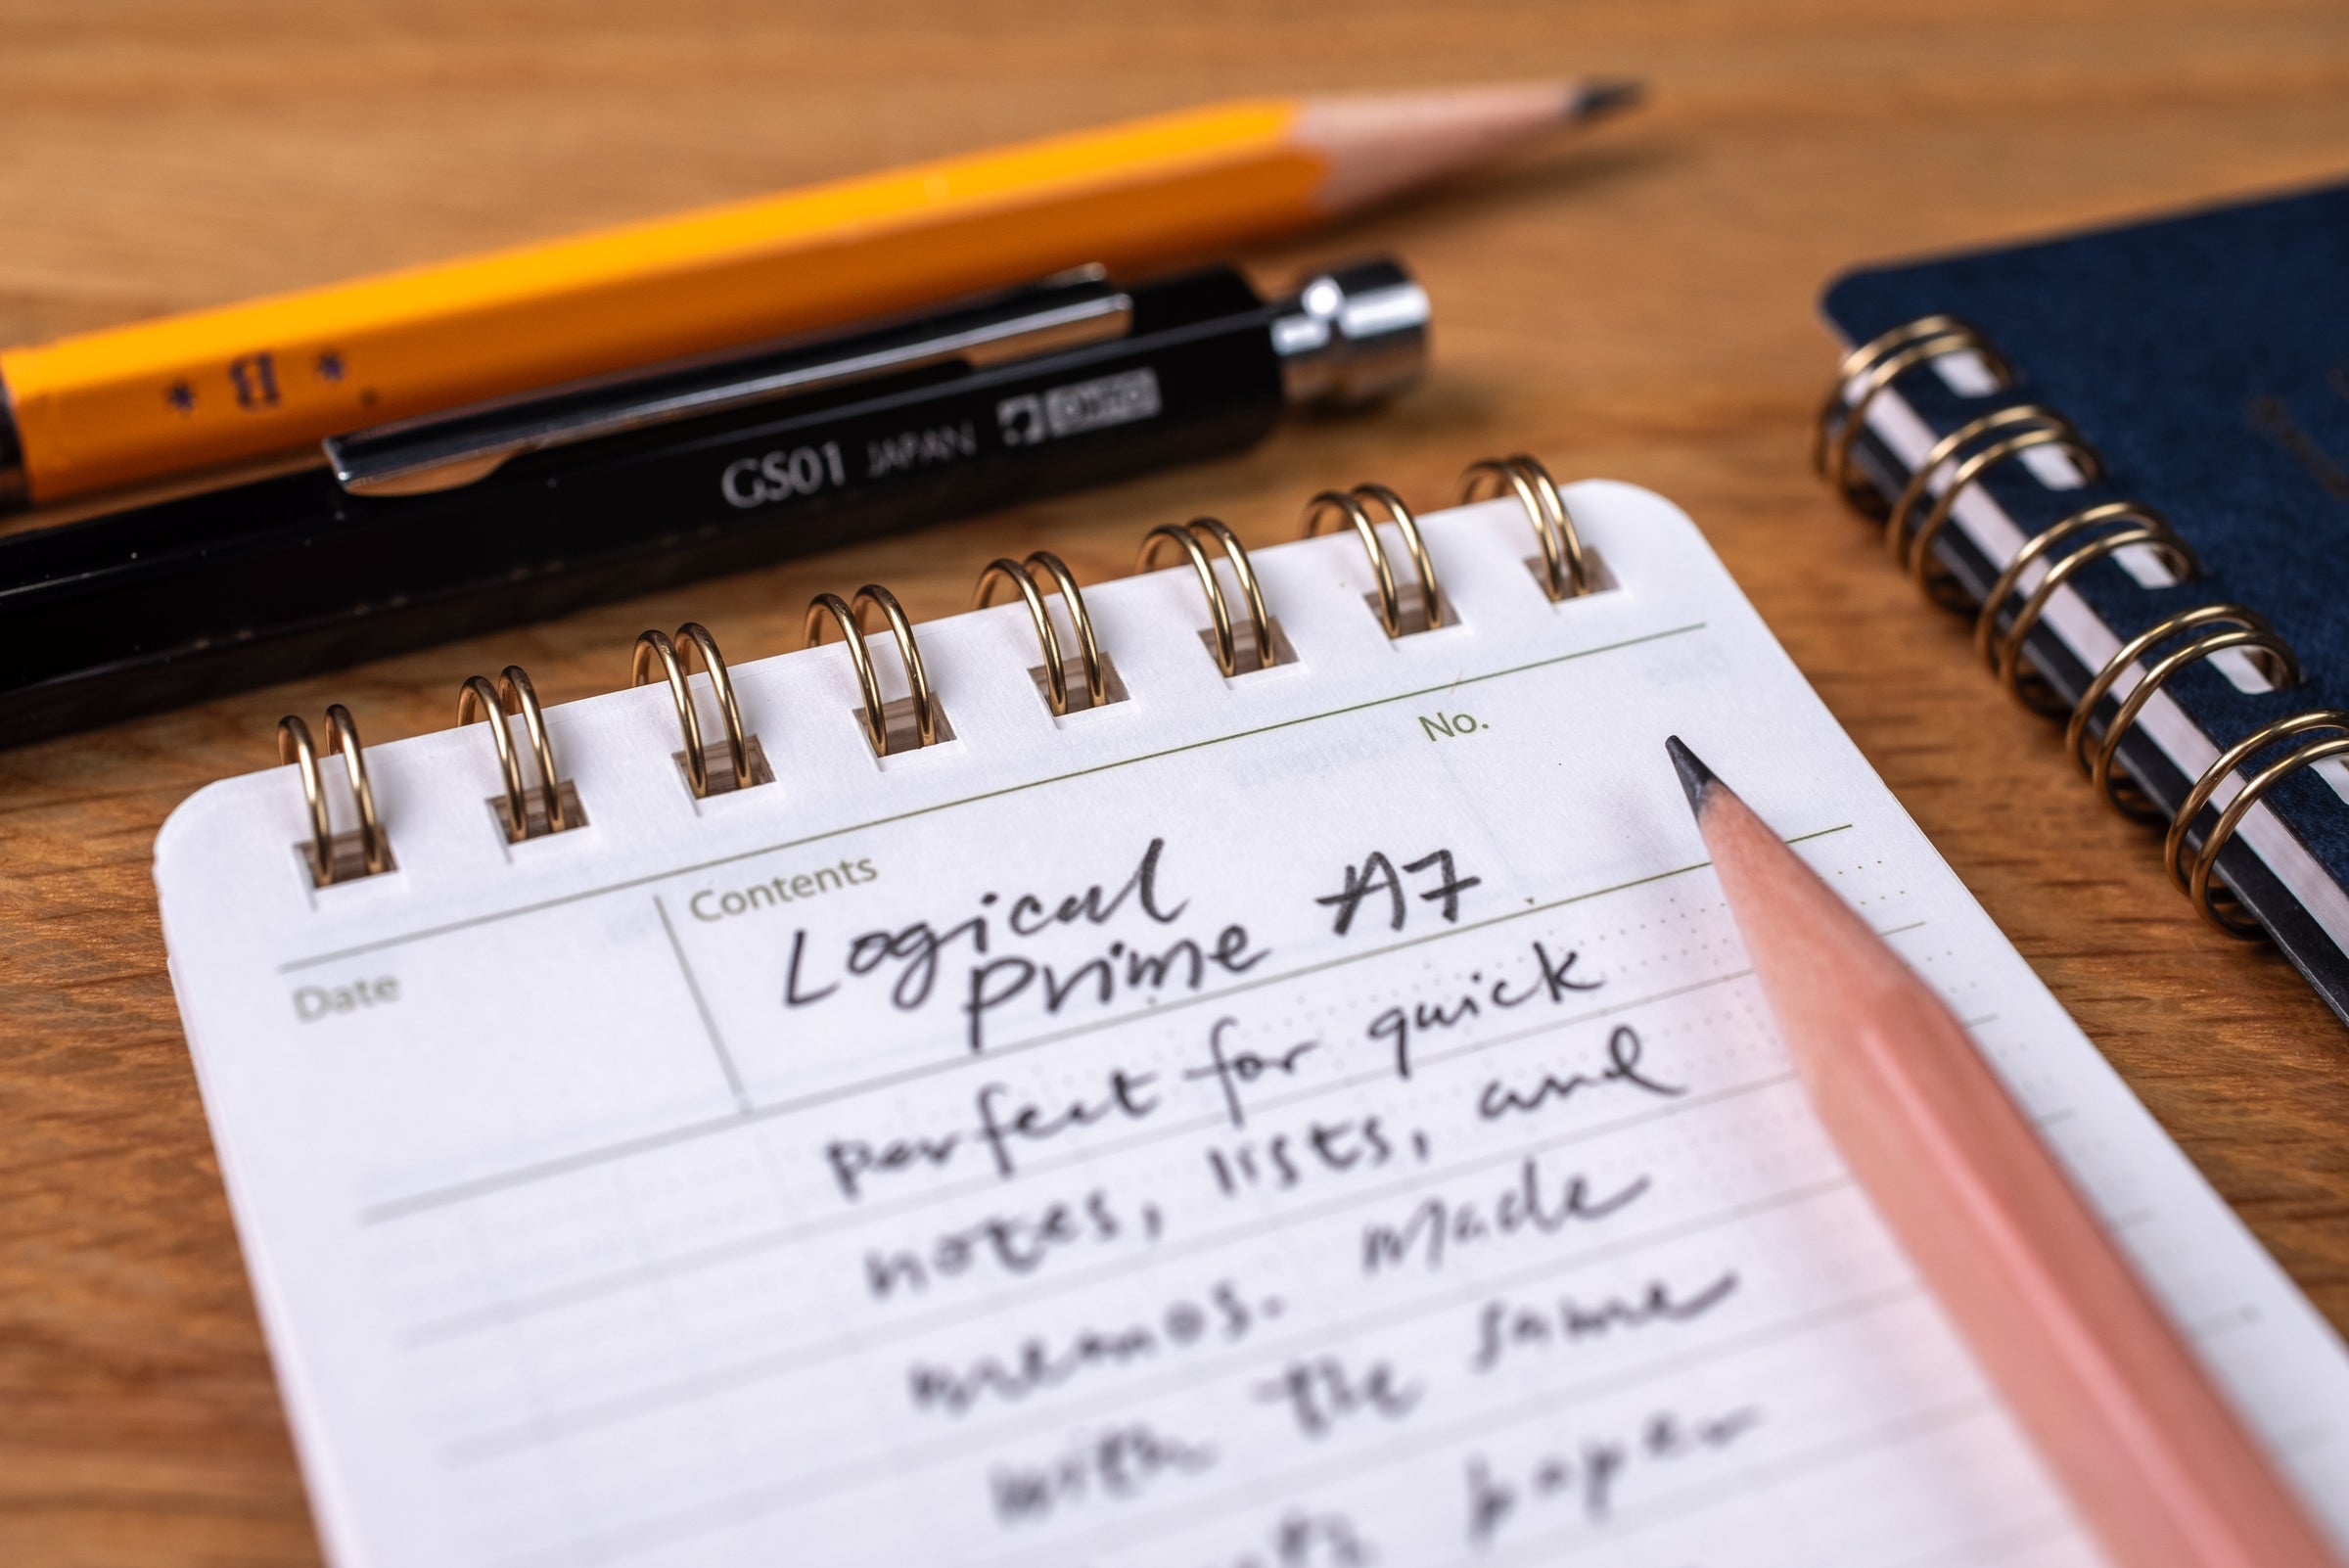 * B *
GS01 JAPAN OHTO
No.
Contents
Date
Logical
Prime A7
perfect for quick
notes, lists, and
memos. Made
with the same
paper